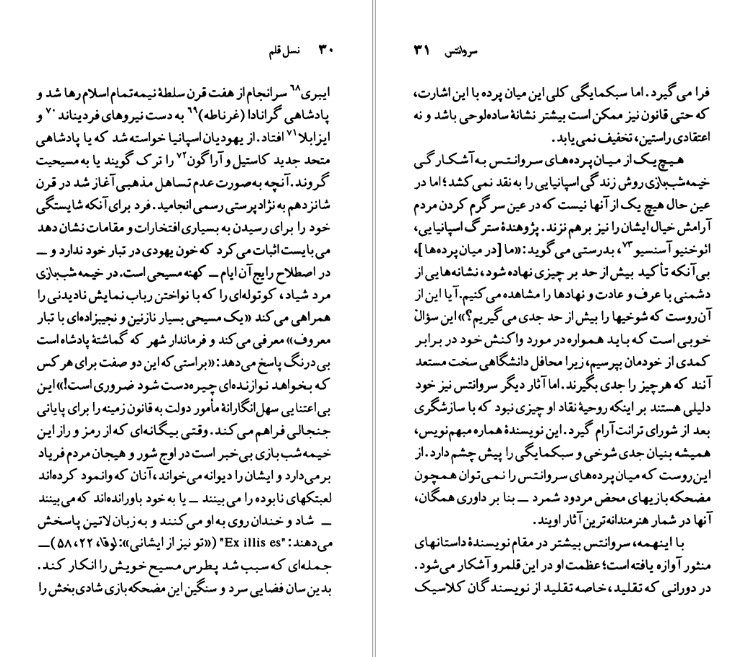 ۳۰ نسل قلم
ایبری۶۸ سرانجام از هفت قرن سلطهٔ نیمه‌تمام اسلام رها شد و
پادشاهی گرانادا (غرناطه)۶۹ به دست نیروهای فردیناند۷۰ و
ایزابلا۷۱ افتاد. از یهودیان اسپانیا خواسته شد که یا پادشاهی
متحد جدید کاستیل و آراگون۷۲ را ترک گویند یا به مسیحیت
گروند. آنچه به‌صورت عدم تساهل مذهبی آغاز شد در قرن
شانزدهم به نژادپرستی رسمی انجامید. فرد برای آنکه شایستگی
خود را برای رسیدن به بسیاری افتخارات و مقامات نشان دهد
می‌بایست اثبات می‌کرد که خون یهودی در تبار خود ندارد و ــ
در اصطلاح رایج آن ایام ــ کهنه مسیحی است. در خیمه شب‌بازی
مرد شیاد، کوتوله‌ای را که با نواختن رباب نمایش نادیدنی را
همراهی می‌کند «یک مسیحی بسیار نازنین و نجیبزاده‌ای با تبار
معروف» معرفی می‌کند و فرماندار شهر که گماشتهٔ پادشاه است
بی‌درنگ پاسخ می‌دهد: «براستی‌که این دو صفت برای هرکس
که بخواهد نوازنده‌ای چیره‌دست شود ضروری است!» این
بی‌اعتنایی سهل‌انگارانهٔ مأمور دولت به قانون زمینه را برای پایانی
جنجالی فراهم می‌کند. وقتی بیگانه‌ای که از رمز و راز این
خیمه شب بازی بی‌خبر است در اوج شور و هیجان مردم فریاد
برمی‌دارد و ایشان را دیوانه می‌خواند، آنان که وانمود کرده‌اند
لعبتکهای نابوده را می‌بینند ــ یا به خود باورانده‌اند که می‌بینند
ــ شاد و خندان روی به او می‌کنند و به زبان لاتین پاسخش
می‌دهند: "Ex illis es" («تو نیز از ایشانی»: لوقا، ۲۲، ۵۸) ــ
جمله‌ای که سبب شد پطرس مسیح خویش را انکار کند.
بدین‌سان فضایی سرد و سنگین این مضحکه‌بازی شادی‌بخش را
سروانتس ۳۱
فرا می‌گیرد. اما سبکمایگی کلی این میان پرده با این اشارت،
که حتی قانون نیز ممکن است بیشتر نشانهٔ ساده‌لوحی باشد و نه
اعتقادی راستین، تخفیف نمی‌یابد.
هیچ‌یک از میان‌پرده‌های سروانتس به‌آشکارگی
خیمه‌شب‌بازی روش زندگی اسپانیایی را به نقد نمی‌کشد؛ اما در
عین حال هیچ یک از آنها نیست که در عین سرگرم کردن مردم
آرامش خیال ایشان را نیز برهم نزند. پژوهندهٔ سترگ اسپانیایی،
ائوخنیو آسنسیو۷۳، بدرستی می‌گوید: «ما [در میان‌پرده‌ها]،
بی‌آنکه تأکید بیش از حد بر چیزی نهاده شود، نشانه‌هایی از
دشمنی با عرف و عادت و نهادها را مشاهده می‌کنیم. آیا این از
آن‌روست که شوخیها را بیش از حد جدی می‌گیریم؟» این سؤال
خوبی است که باید همواره در مورد واکنش خود در برابر
کمدی از خودمان بپرسیم، زیرا محافل دانشگاهی سخت مستعد
آنند که هرچیز را جدی بگیرند. اما آثار دیگر سروانتس نیز خود
دلیلی هستند بر اینکه روحیهٔ نقاد او چیزی نبود که با سازشگری
بعد از شورای ترانت آرام گیرد. این نویسندهٔ هماره مبهم‌نویس،
همیشه بنیان جدی شوخی و سبکمایگی را پیش چشم دارد. از
این‌روست که میان‌پرده‌های سروانتس را نمی‌توان همچون
مضحکه بازیهای محض مردود شمرد ــ بنا بر داوری همگان،
آنها در شمار هنرمندانه‌ترین آثار اویند.
با اینهمه، سروانتس بیشتر در مقام نویسندهٔ داستانهای
منثور آوازه یافته است؛ عظمت او در این قلمرو آشکار می‌شود.
در دورانی که تقلید، خاصه تقلید از نویسندگان کلاسیک